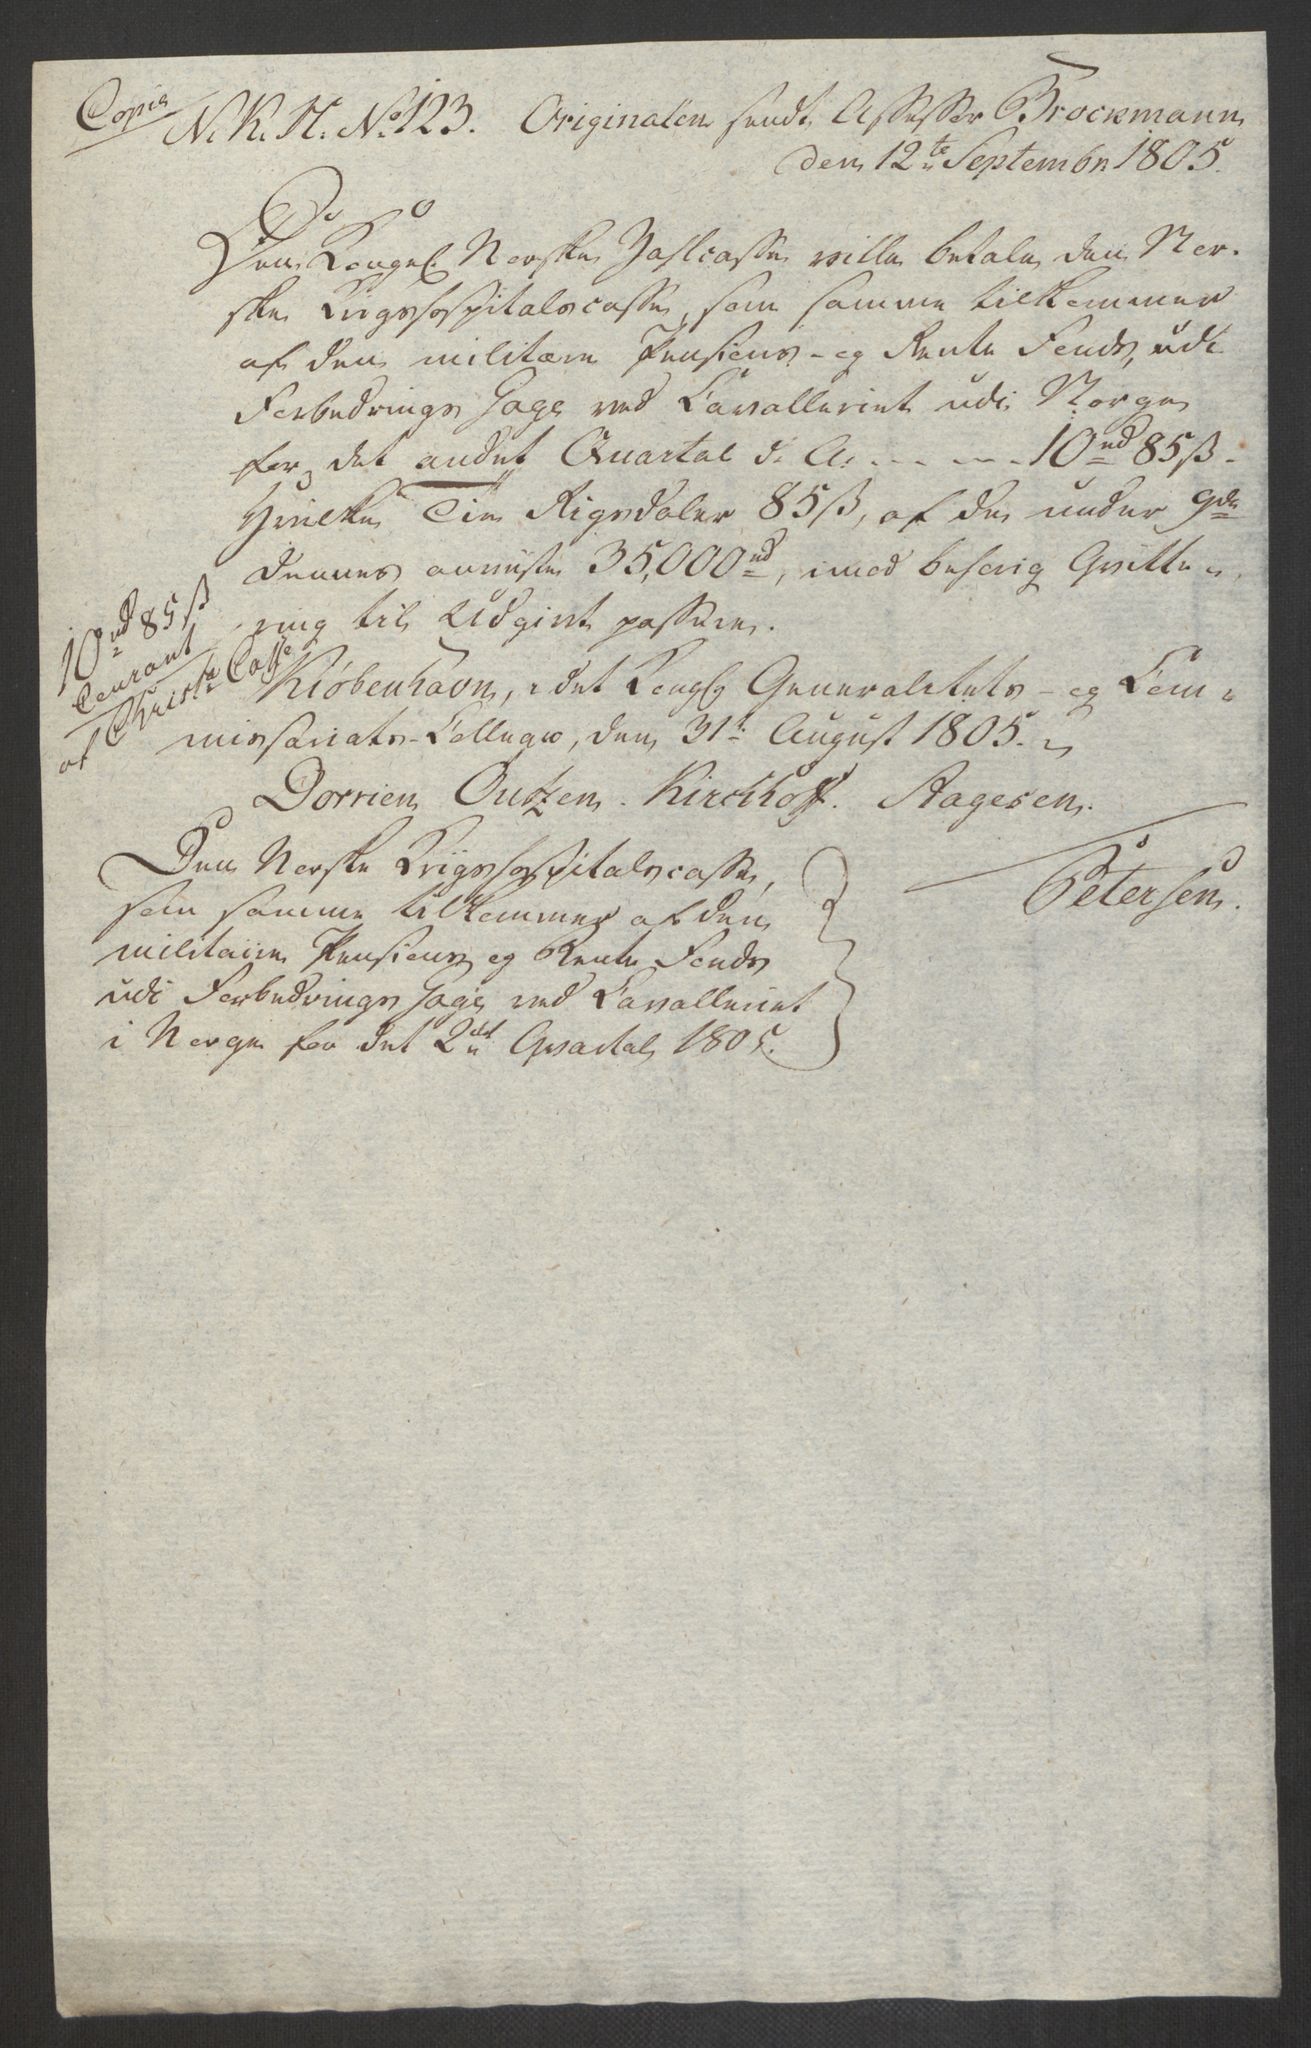 Copie
N. K. H. No 123. Originalen sendt Assessor Brockmann
den 12te Septembr 1805.
Den Kongel. Norske Zahlcasse ville betale den Nor-
ske Krigshospitalscasse, som samme tilkommer
af den militaire Pensions- og Rente Fond, udi
Forbedrings Gage ved Cavalleriet udi Norge
for det andet Quartal d. A. . . . . 10 rd 85 ß.
Hvilke Tie Rigsdaler 85 ß, af de under 9de
dennes anviiste 35,000 rd, imod behørig Qvitte-
ring til Udgivt passere.
10 rd 85 ß
Courant
af Christa Casse
Kiøbenhavn, i det Kongelig Generalitets- og Com-
missariats-Collegio, den 31te August 1805.
Dorrien Outzen. Kirchhoff. Aagesen.
Petersen.
Den Norske Kriigshospitalscasse,
som samme tilkommer af den
militaire Pensions og Rente Fonds
udi Forbedrings Gage ved Cavalleriet
i Norge for det 2det Qvartal 1805.